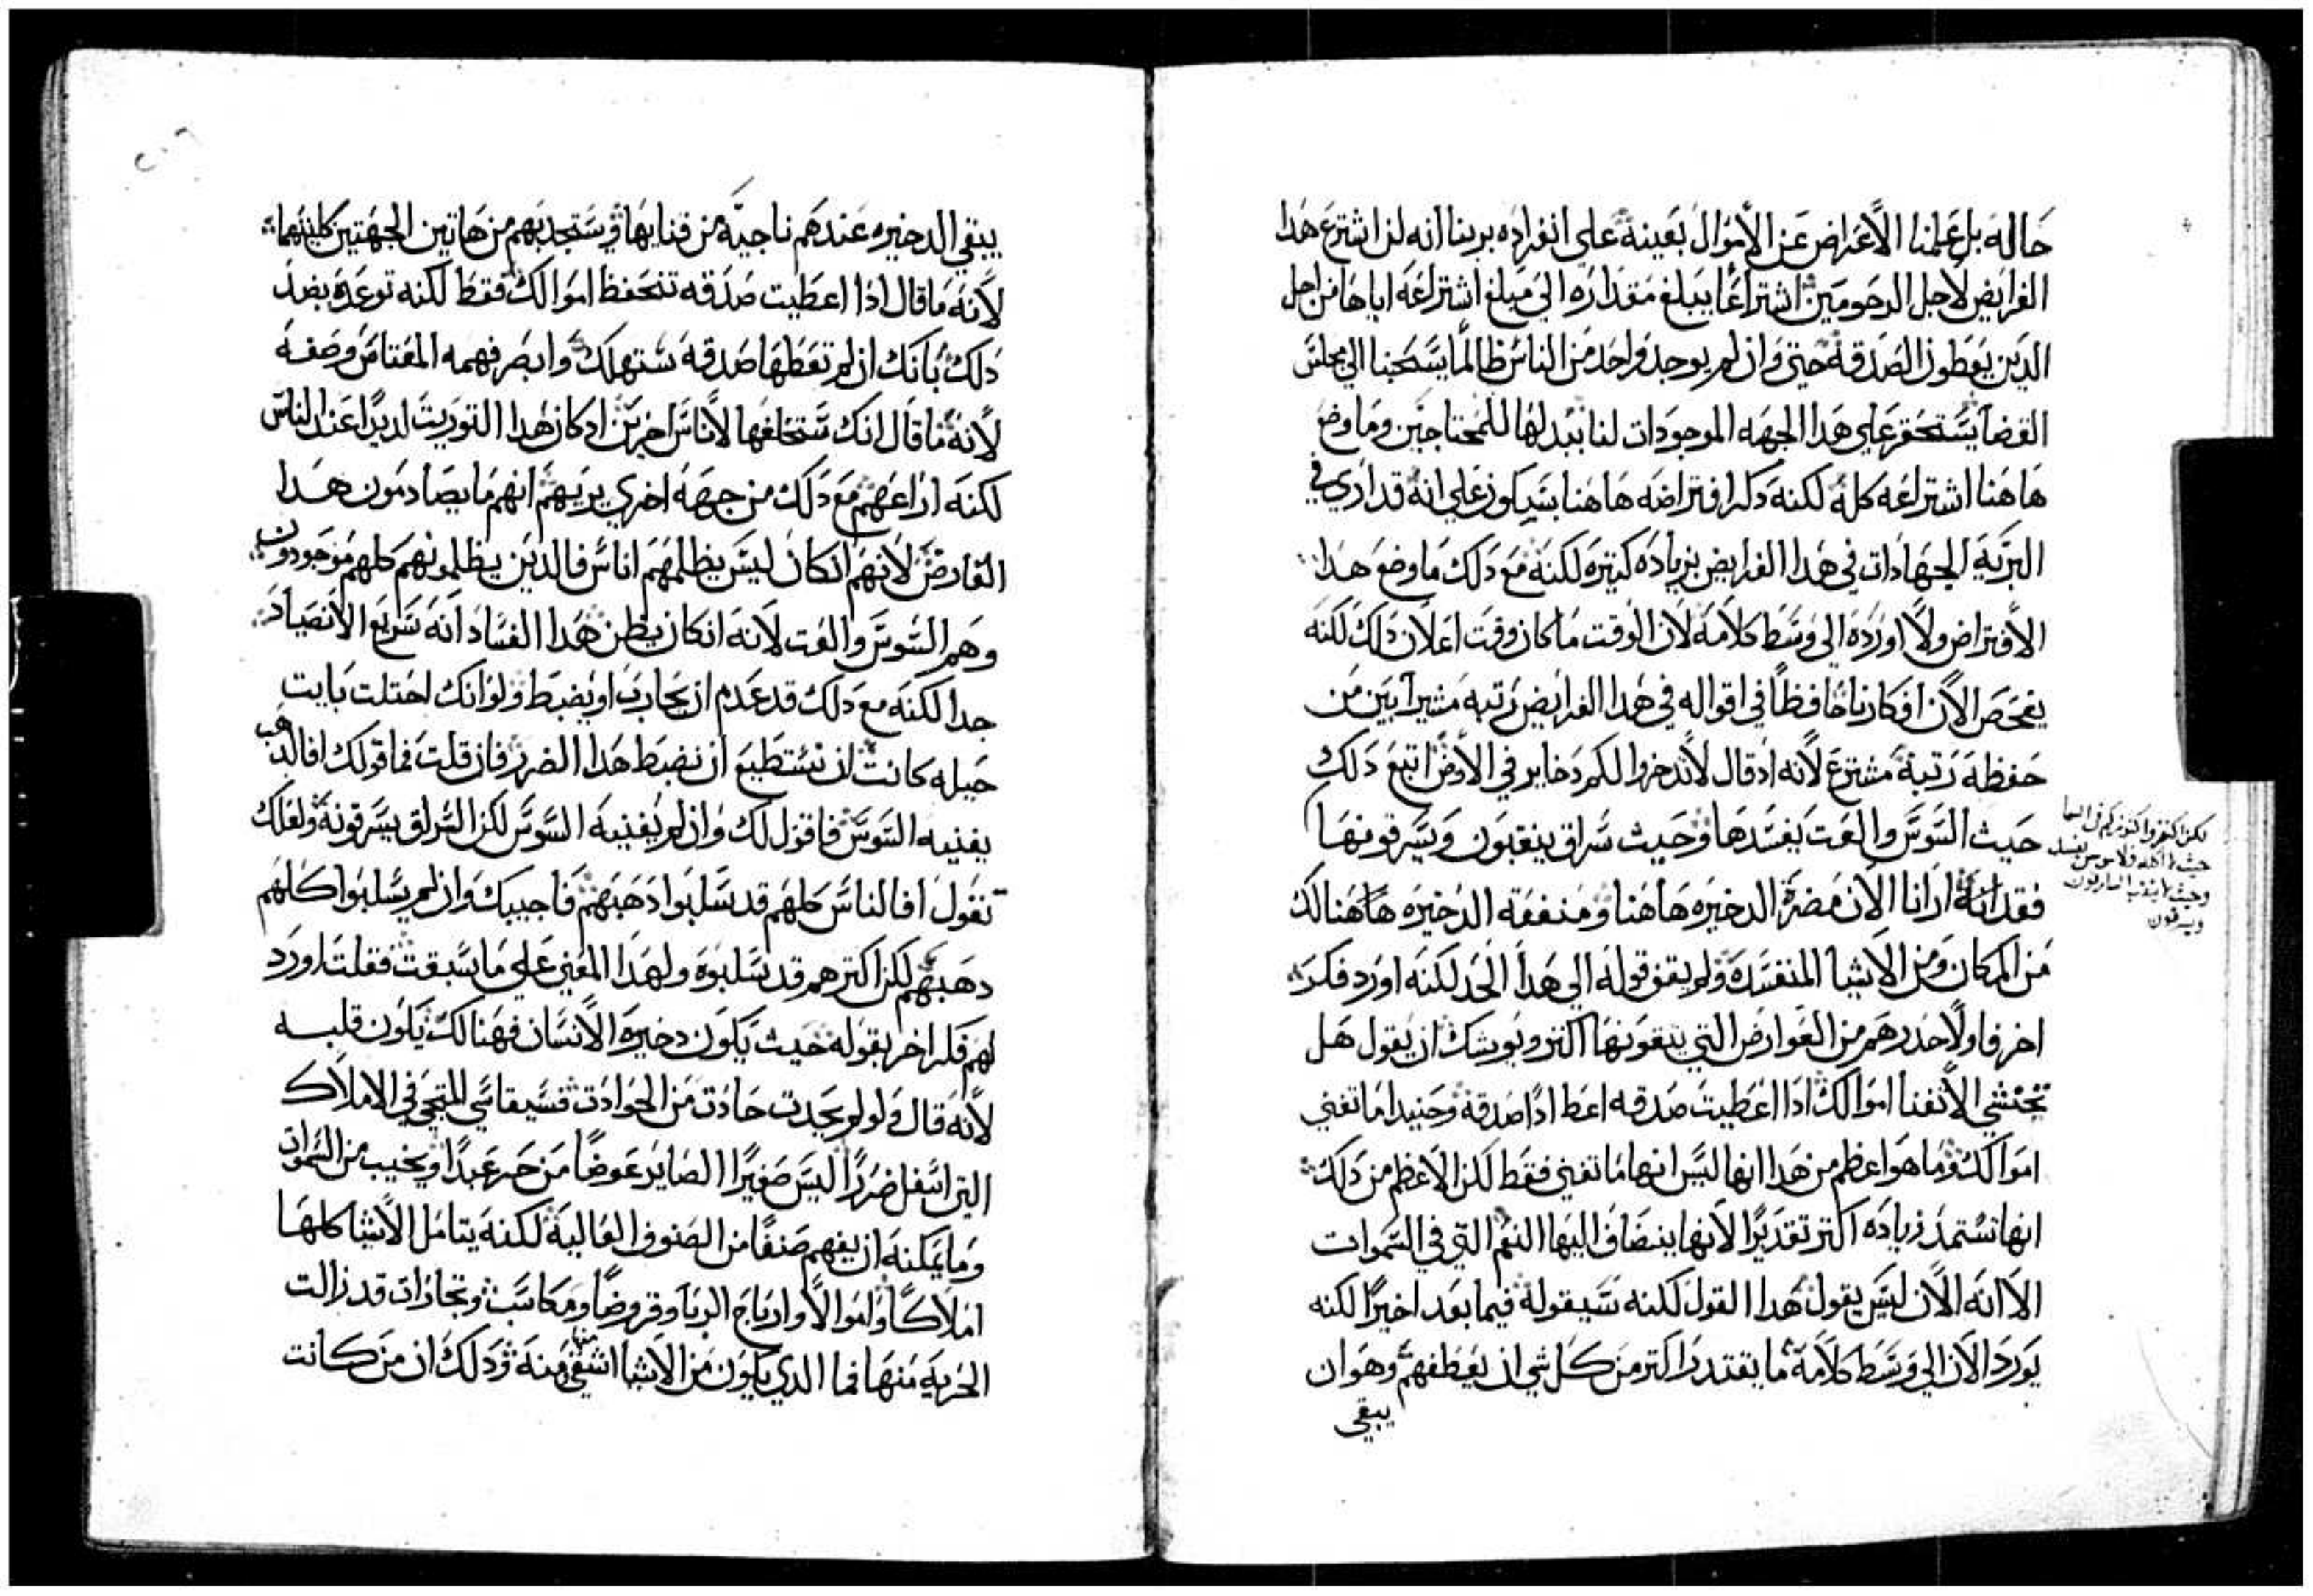 حاله بل علمنا الاعراض عن الاموال بعينه على انفراده برينا انه لن اشترع هدا
الفرايض لاجل المرحومين اشتراعًا يبلغ مقداره الى مبلغ اشتراعه اياها من اجل
الدين يعطون الصدقه حتى وان لم يوجد واحد من الناس ظالمًا يسحبنا الى مجلس
القضا يستحقر على هدا الجهه الموجودات لنا ببدلها للمحتاجين وما وضع
هاهنا اشتراعه كله لكنه دكر افتراضه هاهنا بسكون على انه قد ارى في
البريه الجهادات في هدا الفرايض بزياده كتيره لكنه مع دلك ما وضع هدا
الافتراض ولا اورده الى وسط كلامه لان الوقت ما كان وقت اعلان دلك لكنه
يفحص الان افكارنا حافظًا في اقواله في هدا الفرايض رتبه مشير ابين من
حفظه رتبة مشترع لانه اد قال لا تدخروا لكم دخاير في الارض اتبع دلك
حيث السوس والعت يفسدها وحيث سراق ينقبون ويسرقونها
لكن اكنزوا كنوزكم في السما
حيث لا اكله ولا سوس يفسد
وحيث لا ينقب السارقون
ويسرقون
فقد انه ارانا الان مضرة الدخيره هاهنا ومنفعة الدخيره هاهنالك
من المكان ومن الاشيا المنفسده ولم يقف قوله الى هدا الحد لكنه اورد فكر
اخر فاولًا حدرهم من العوارض التي يتقونها اكتر ويوشك ان يقول هل
تختشي الا تفنا اموالك ادا اعطيت صدقه اعط ادًا صدقة وحنيدا ما تفنى
اموالك وما هو اعظم من هدا انها ليس انها ما تفنى فقط لكن الاعظم من دلك
انها تستمد زياده اكتر تقديرًا لانها ينضاف اليها النعم التي في السموات
الا انه الان ليس يقول هدا القول لكنه سيقوله فيما بعد اخيرًا لكنه
يورد الان الى وسط كلامه ما يقتدر اكتر من كل شي ان يعطفهم وهو ان
يبقى
يبقى الدخيره عندهم ناجية من فنايها وستجدبهم من هاتين الجهتين كلتيهما
لانه ما قال ادا اعطيت صدقه تنحفظ اموالك فقط لكنه توعده بضد
دلك بانك ان لم تعطها صدقة ستهلك وابصر فهمه المعتاص وصفه
لانه ما قال انك ستخلفها لاناس اخرين اد كان هدا التوريث لديدًا عند الناس
لكنه اراعهم مع دلك من جهة اخرى يريهم انهم ما يصادمون هدا
العارض لانهم ان كان ليس يظلمهم اناس فالدين يظلمونهم كلهم موجودون
وهم السوس والعت لانه ان كان يظن هدا الفساد انه سريع الانصياد
جدا لكنه مع دلك قد عدم ان يحارب او يضبط ولو انك احتلت بايت
حيله كانت لن تستطيع ان تضبط هدا الضرر فان قلت فما قولك افالدهب
يفنيه السوس فاقول لك وان لم يفنيه السوس لكن السراق يسرقونه ولعلك
تقول افالناس كلهم قد سلبوا دهبهم فاجيبك وان لم يسلبوا كلهم
دهبهم لكن اكترهم قد سلبوه ولهدا المعنى على ما سبقت فقلت اورد
لهم فكر اخر بقوله حيث يكون دخيرة الانسان فهنالك يكون قلبه
لانه قال ولو لم يحدت حادت من الحوادت فسيقاسي الملتجى في الاملاك
التي اسفل ضررًا ليس صغيرًا الصاير عوضًا من حر عبدًا ويخيب من السموات
وما يمكنه ان يفهم صنفًا من الصنوف العالية لكنه يتامل الاشيا كلها
املاكًا واموالًا وارباح الربا وقروضًا ومكاسب وتجارات قد زالت
الحريه منها فما الدي يكون من الاشيا اشقى منه ودلك ان من كانت